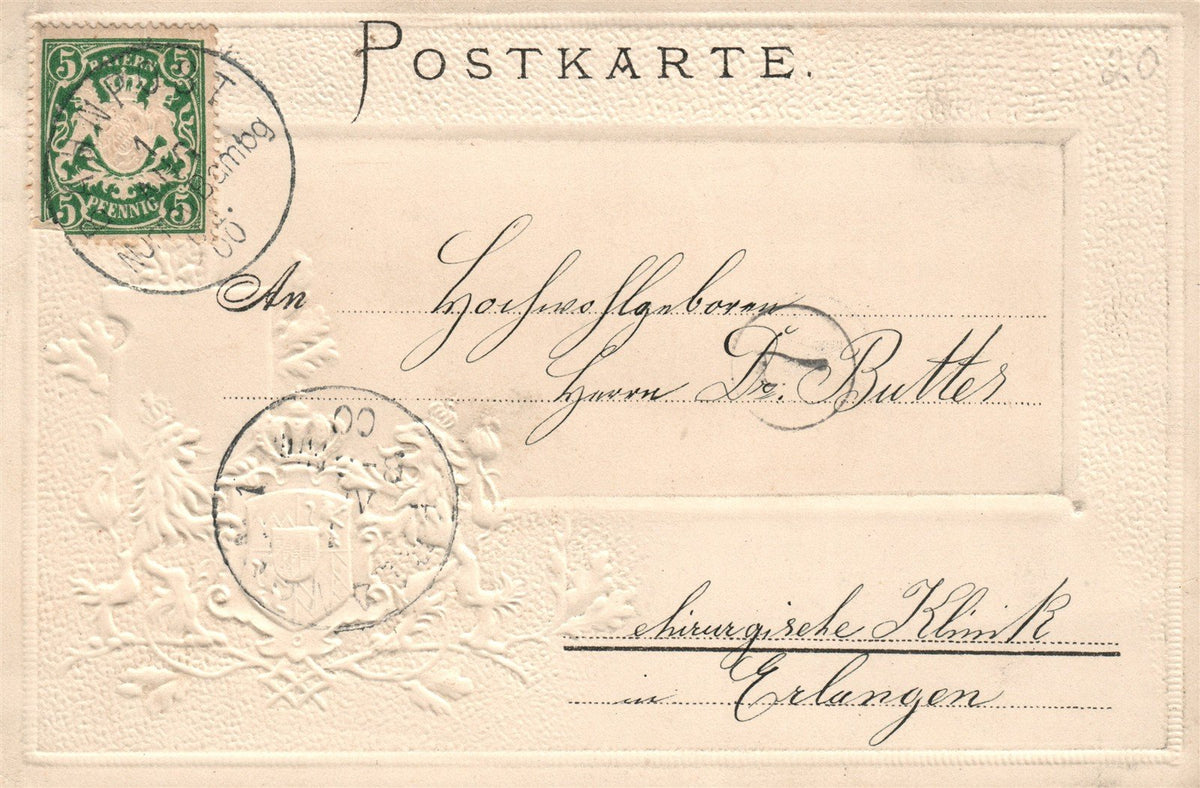 POSTKARTE.
20
5 BAYERN 5
5 PFENNIG 5
BAHNPOST
1
Bambg
00
An Hochwohlgeboren
Herrn Dr. Butters
1
00
chirurgische Klinik
in Erlangen